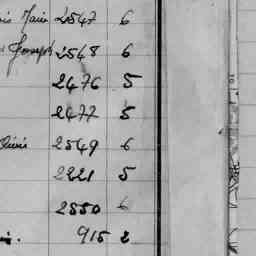 Marie 2547 6
Joseph 2548 6
2476 5
2477 5
2549 6
2221 5
2550 6
915 2